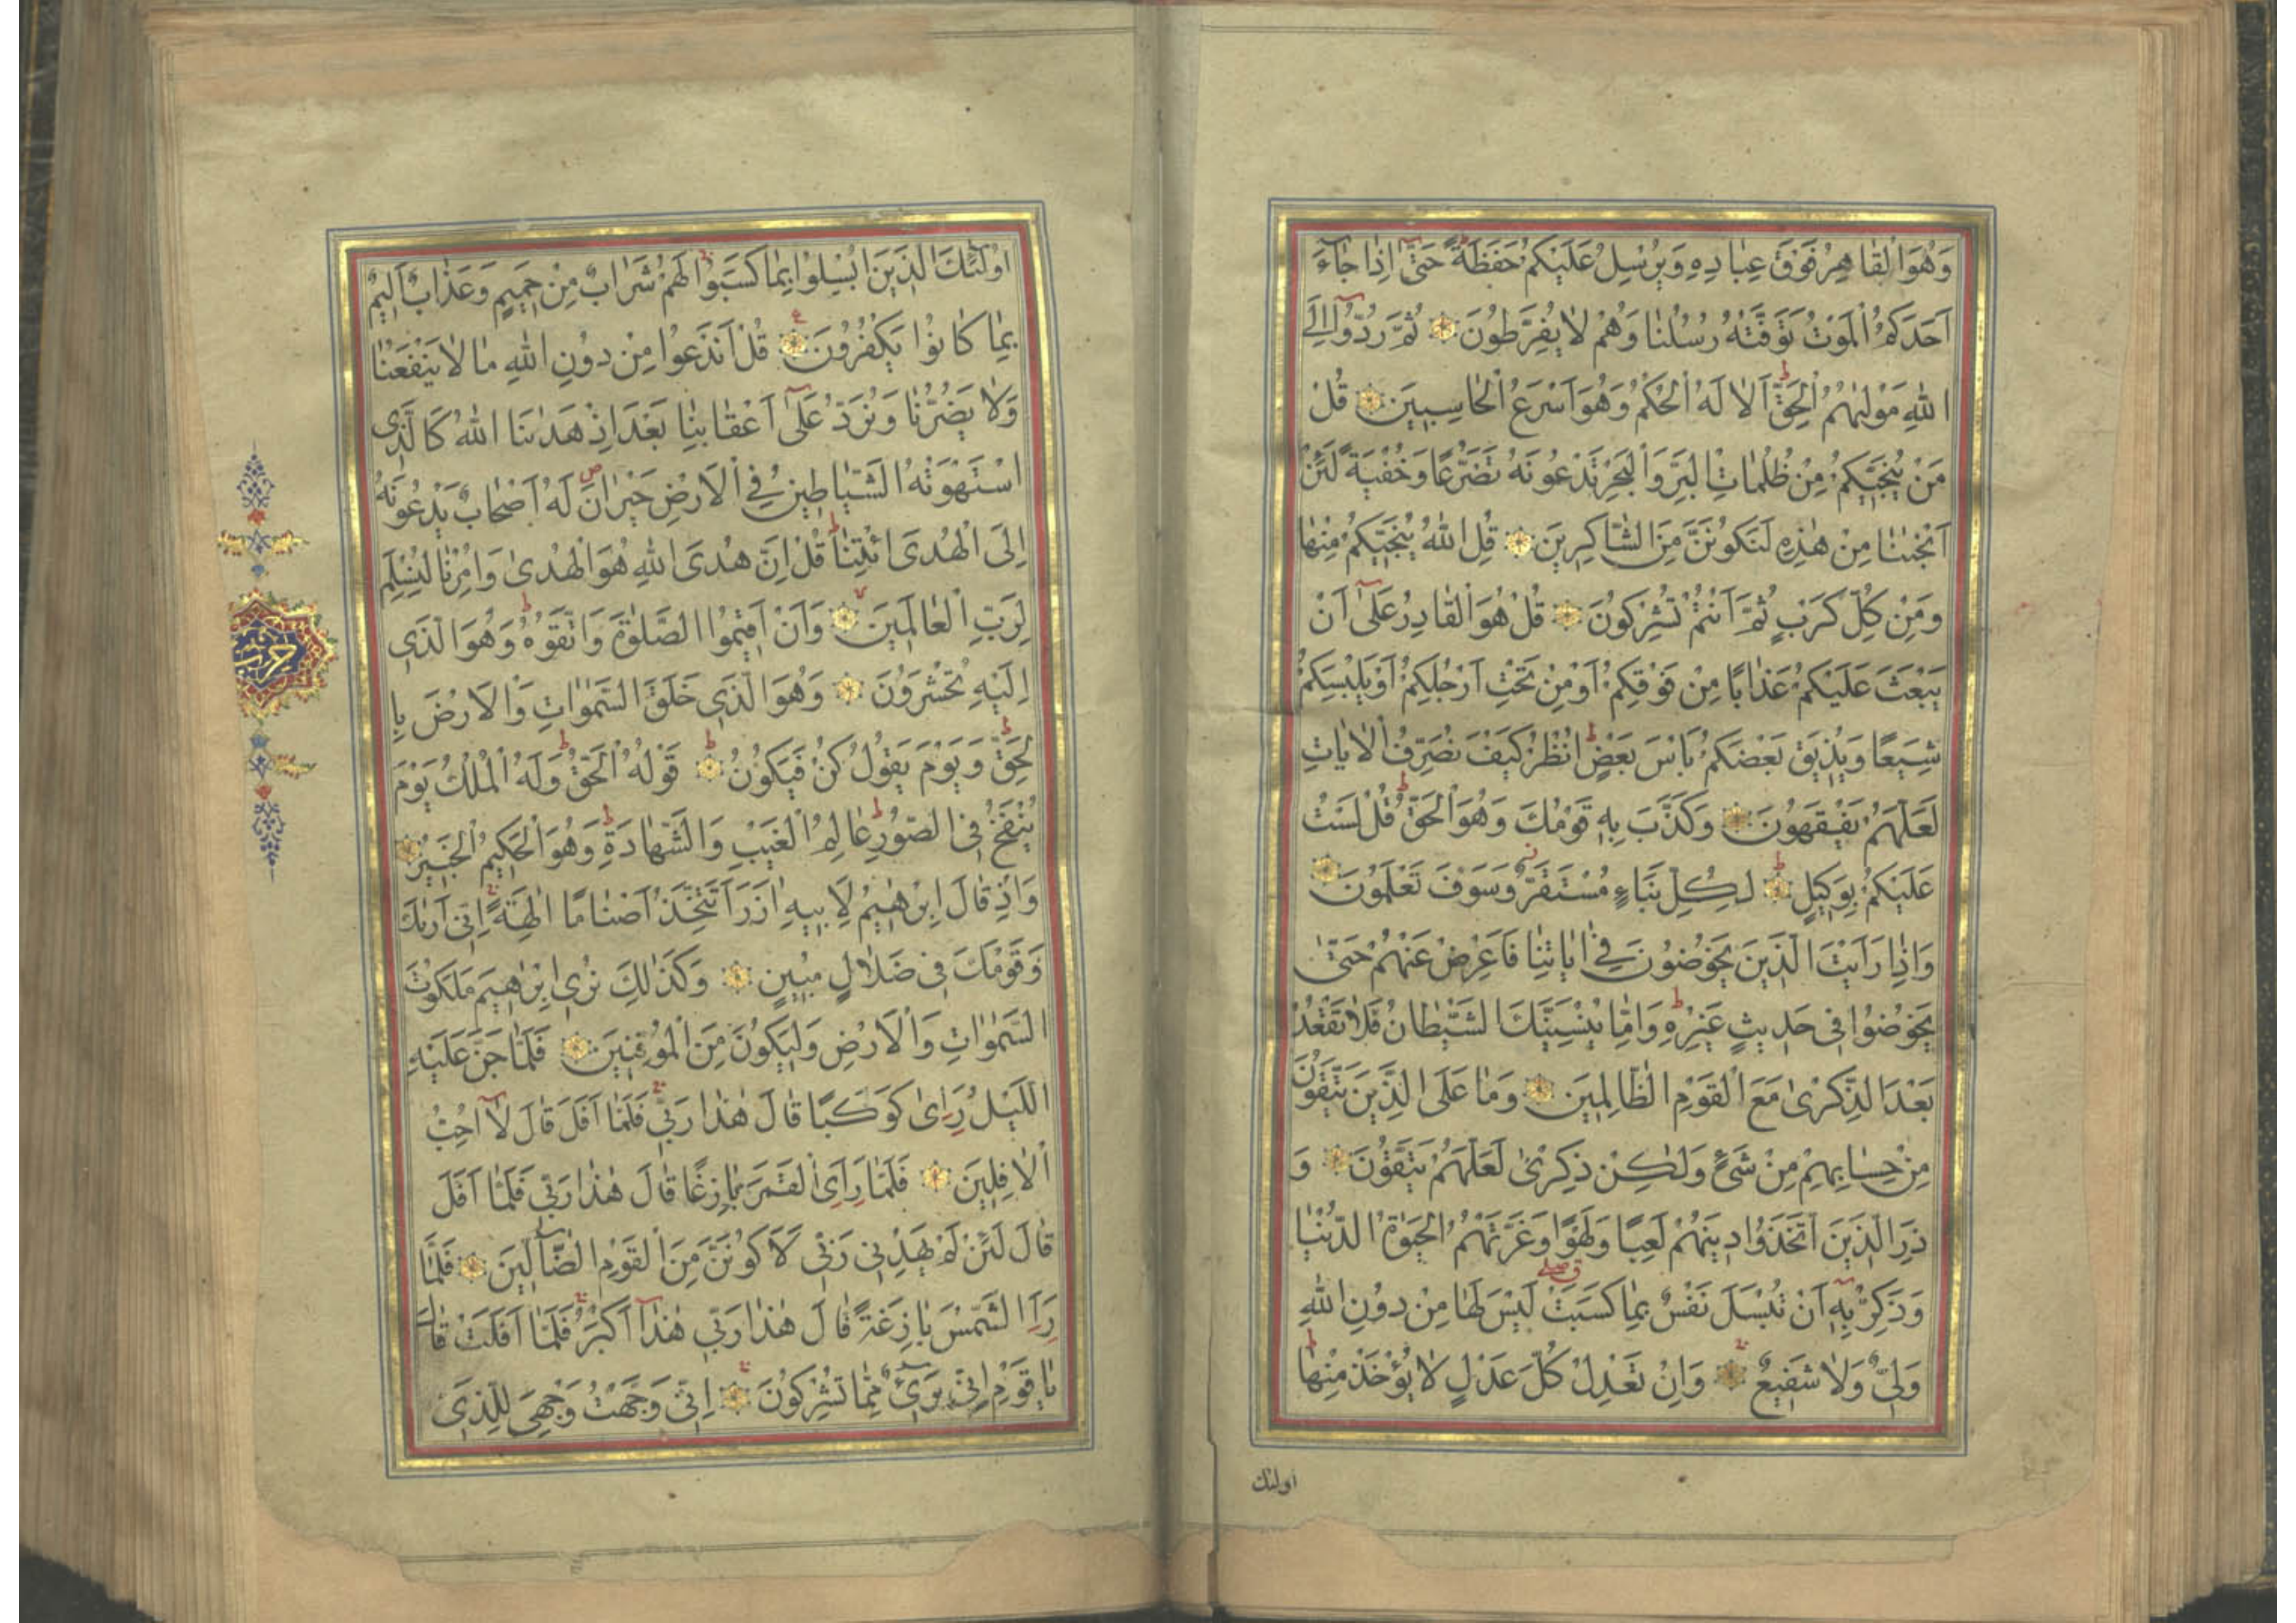 وَهُوَ الْقَاهِرُ فَوْقَ عِبَادِهِ وَيُرْسِلُ عَلَيْكُمْ حَفَظَةً حَتّٰى اِذَا جَاءَ
اَحَدَكُمُ الْمَوْتُ تَوَفَّتْهُ رُسُلُنَا وَهُمْ لَا يُفَرِّطُونَ ثُمَّ رُدُّوا اِلَى
اللهِ مَوْلٰيهُمُ الْحَقِّ اَلَا لَهُ الْحُكْمُ وَهُوَ اَسْرَعُ الْحَاسِبِينَ قُلْ
مَنْ يُنَجِّيكُمْ مِنْ ظُلُمَاتِ الْبَرِّ وَالْبَحْرِ تَدْعُونَهُ تَضَرُّعًا وَخُفْيَةً لَئِنْ
اَنْجٰينَا مِنْ هٰذِهِ لَنَكُونَنَّ مِنَ الشَّاكِرِينَ قُلِ اللهُ يُنَجِّيكُمْ مِنْهَا
وَمِنْ كُلِّ كَرْبٍ ثُمَّ اَنْتُمْ تُشْرِكُونَ قُلْ هُوَ الْقَادِرُ عَلٰى اَنْ
يَبْعَثَ عَلَيْكُمْ عَذَابًا مِنْ فَوْقِكُمْ اَوْ مِنْ تَحْتِ اَرْجُلِكُمْ اَوْ يَلْبِسَكُمْ
شِيَعًا وَيُذِيقَ بَعْضَكُمْ بَاْسَ بَعْضٍ اُنْظُرْ كَيْفَ نُصَرِّفُ الْاٰيَاتِ
لَعَلَّهُمْ يَفْقَهُونَ وَكَذَّبَ بِهِ قَوْمُكَ وَهُوَ الْحَقُّ قُلْ لَسْتُ
عَلَيْكُمْ بِوَكِيلٍ لِكُلِّ نَبَاءٍ مُسْتَقَرٌّ وَسَوْفَ تَعْلَمُونَ
وَاِذَا رَاَيْتَ الَّذِينَ يَخُوضُونَ فِي اٰيَاتِنَا فَاَعْرِضْ عَنْهُمْ حَتّٰى
يَخُوضُوا فِي حَدِيثٍ غَيْرِهِ وَاِمَّا يُنْسِيَنَّكَ الشَّيْطَانُ فَلَا تَقْعُدْ
بَعْدَ الذِّكْرٰى مَعَ الْقَوْمِ الظَّالِمِينَ وَمَا عَلَى الَّذِينَ يَتَّقُونَ
مِنْ حِسَابِهِمْ مِنْ شَيْءٍ وَلٰكِنْ ذِكْرٰى لَعَلَّهُمْ يَتَّقُونَ وَ
ذَرِ الَّذِينَ اتَّخَذُوا دِينَهُمْ لَعِبًا وَلَهْوًا وَغَرَّتْهُمُ الْحَيٰوةُ الدُّنْيَا
وَذَكِّرْ بِهِ اَنْ تُبْسَلَ نَفْسٌ بِمَا كَسَبَتْ لَيْسَ لَهَا مِنْ دُونِ اللهِ
وَلِيٌّ وَلَا شَفِيعٌ وَاِنْ تَعْدِلْ كُلَّ عَدْلٍ لَا يُؤْخَذْ مِنْهَا
اولئك
اُولٰئِكَ الَّذِينَ اُبْسِلُوا بِمَا كَسَبُوا لَهُمْ شَرَابٌ مِنْ حَمِيمٍ وَعَذَابٌ اَلِيمٌ
بِمَا كَانُوا يَكْفُرُونَ قُلْ اَنَدْعُوا مِنْ دُونِ اللهِ مَا لَا يَنْفَعُنَا
وَلَا يَضُرُّنَا وَنُرَدُّ عَلٰى اَعْقَابِنَا بَعْدَ اِذْ هَدٰينَا اللهُ كَالَّذِى
اسْتَهْوَتْهُ الشَّيَاطِينُ فِي الْاَرْضِ حَيْرَانَ لَهُ اَصْحَابٌ يَدْعُونَهُ
اِلَى الْهُدَى ائْتِنَا قُلْ اِنَّ هُدَى اللهِ هُوَ الْهُدٰى وَاُمِرْنَا لِنُسْلِمَ
لِرَبِّ الْعَالَمِينَ وَاَنْ اَقِيمُوا الصَّلٰوةَ وَاتَّقُوهُ وَهُوَ الَّذِى
اِلَيْهِ تُحْشَرُونَ وَهُوَ الَّذِى خَلَقَ السَّمٰوَاتِ وَالْاَرْضَ بِا
لْحَقِّ وَيَوْمَ يَقُولُ كُنْ فَيَكُونُ قَوْلُهُ الْحَقُّ وَلَهُ الْمُلْكُ يَوْمَ
يُنْفَخُ فِي الصُّورِ عَالِمُ الْغَيْبِ وَالشَّهَادَةِ وَهُوَ الْحَكِيمُ الْخَبِيرُ
وَاِذْ قَالَ اِبْرٰهِيمُ لِاَبِيهِ اٰزَرَ اَتَتَّخِذُ اَصْنَامًا اٰلِهَةً اِنِّى اَرٰيكَ
وَقَوْمَكَ فِي ضَلَالٍ مُبِينٍ وَكَذٰلِكَ نُرِى اِبْرٰهِيمَ مَلَكُوتَ
السَّمٰوَاتِ وَالْاَرْضِ وَلِيَكُونَ مِنَ الْمُوقِنِينَ فَلَمَّا جَنَّ عَلَيْهِ
اللَّيْلُ رَاٰى كَوْكَبًا قَالَ هٰذَا رَبِّى فَلَمَّا اَفَلَ قَالَ لَا اُحِبُّ
الْاٰفِلِينَ فَلَمَّا رَاَى الْقَمَرَ بَازِغًا قَالَ هٰذَا رَبِّى فَلَمَّا اَفَلَ
قَالَ لَئِنْ لَمْ يَهْدِنِى رَبِّى لَاَكُونَنَّ مِنَ الْقَوْمِ الضَّالِّينَ فَلَمَّا
رَاَ الشَّمْسَ بَازِغَةً قَالَ هٰذَا رَبِّى هٰذَا اَكْبَرُ فَلَمَّا اَفَلَتْ قَالَ
يَا قَوْمِ اِنِّى بَرِىءٌ مِمَّا تُشْرِكُونَ اِنِّى وَجَّهْتُ وَجْهِىَ لِلَّذِى
حزب